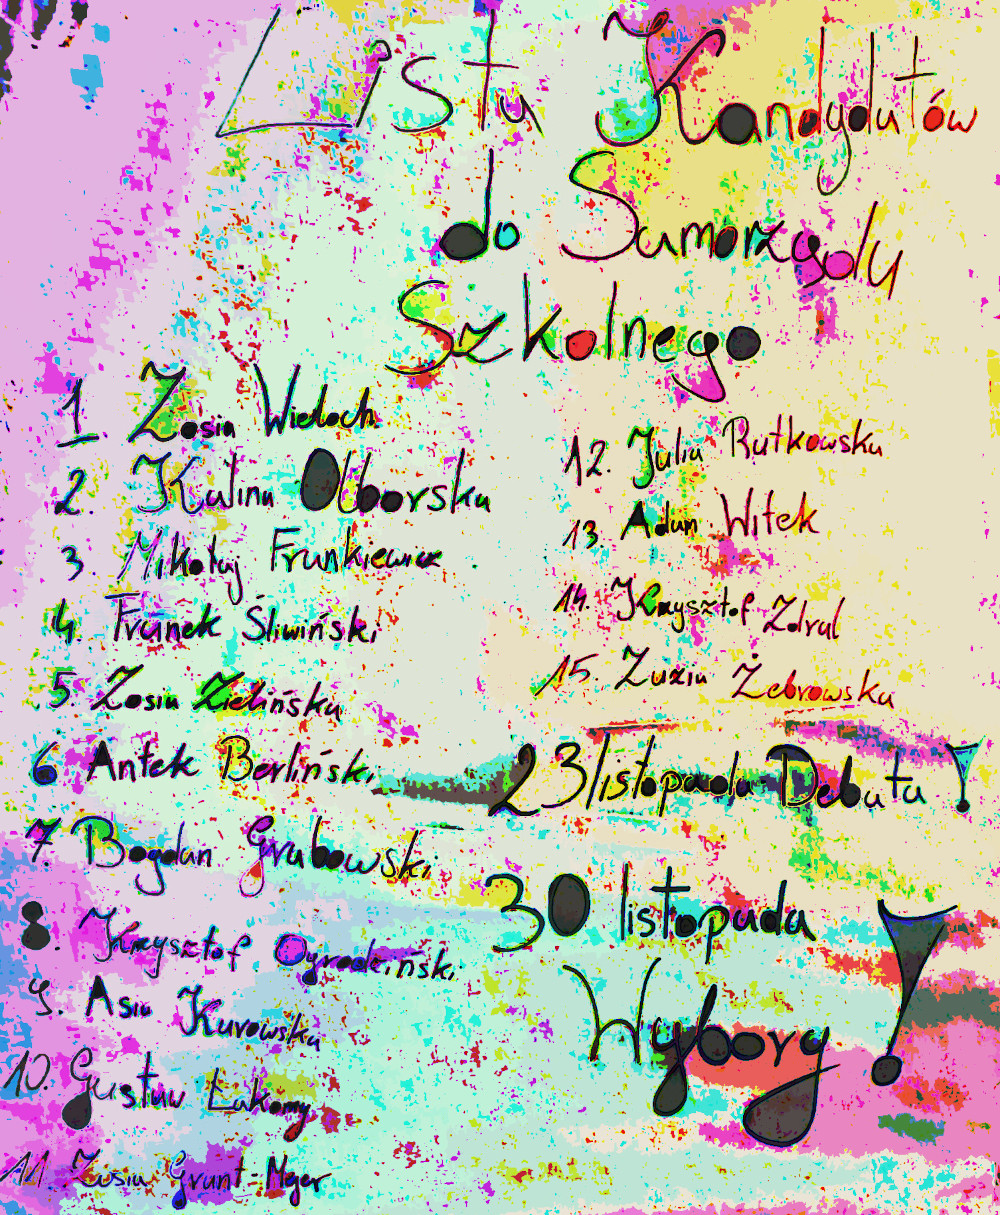 Lista Kandydatów
do Samorządu
Szkolnego
1. Zosia Wieloch
2. Kalina Olborska
3. Mikołaj Frankiewicz
4. Franek Śliwiński
5. Zosia Zielińska
6 Antek Berliński
7. Bogdan Grabowski
8. Krzysztof Ogrodziński
9. Asia Kurowska
10. Gustaw Łakomy
11. Zosia Grant-Meyer
12. Julia Rutkowska
13. Adam Witek
14. Krzysztof Zdral
15. Zuzia Żebrowska
23 listopada Debata!
30 listopada
Wybory!